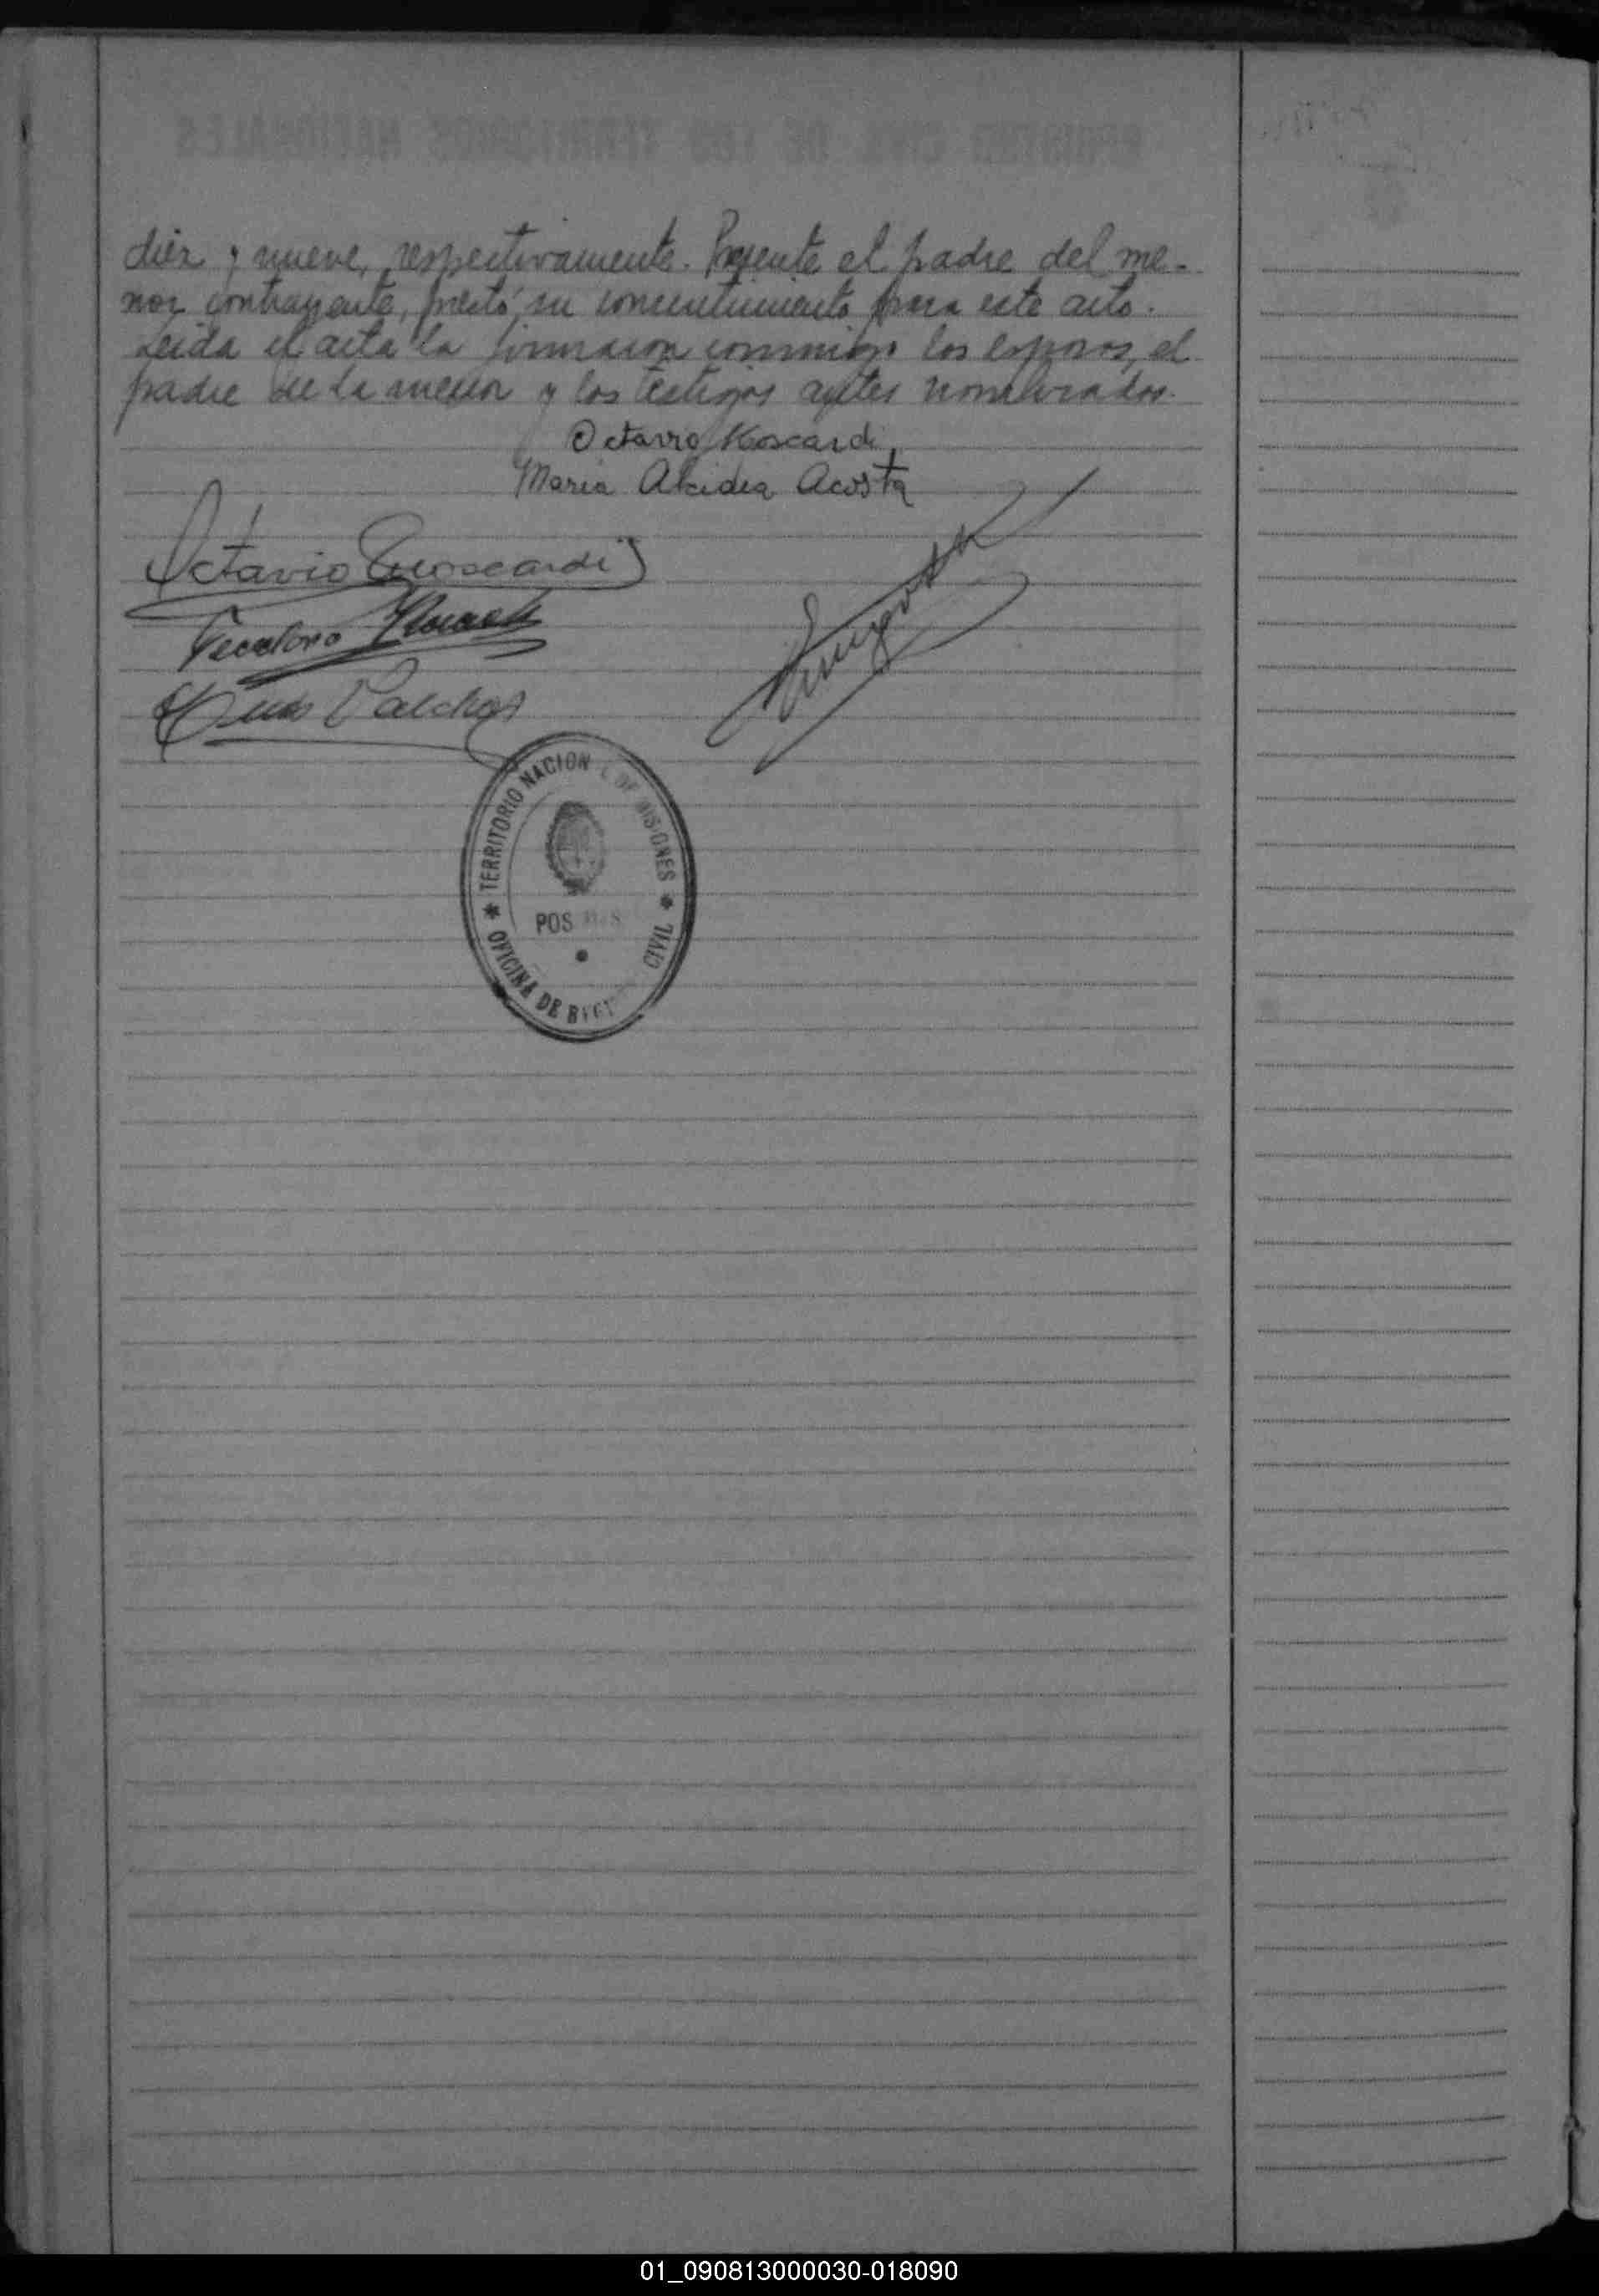 diez y nueve, respectivamente. Presente el padre del me-
nor contrayente, prestó su consentimiento para este acto.
Leida el acta la firmaron conmigo los esposos, el
padre de la menor y los testigos antes nombrados.
Octavio
Maria Alcidea Acosta
Octavio
Teodoro
TERRITORIO NACION L DE MISIONES
POS
OFICINA DE REGI CIVIL
01_090813000030-018090